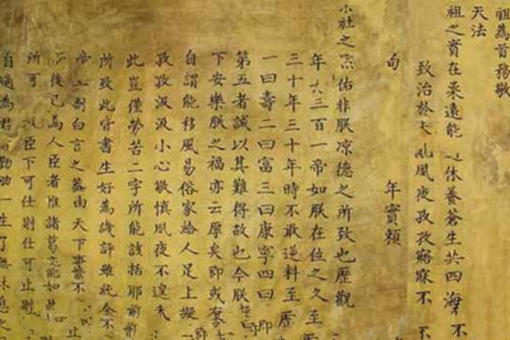 祖為首務敬
天法
祖之實在柔遠能休養蒼生共四海不
致治於夙夜孜孜寤寐不
句 年實賴
社之佑非朕涼德之所致也歷觀
年三百一帝如朕在位之久至
三十年三十年時不敢逆料至歷
一曰壽二曰富三曰康寧四曰
第五者誠以其難得故也今朕
下安樂朕之福亦云厚矣即或有
自謂能移風易俗家給人足上擬
孜孜汲汲小心敬慎夙夜不遑未
此豈僅勞苦二字所能該括耶前
所致此皆書生好為譏評雖純全不
帝王剖白言之蓋由天下事繁不
後已為人臣者惟諸葛亮能如是
所可臣下可仕則仕可止則
自適為君勤劬一生了無休息之